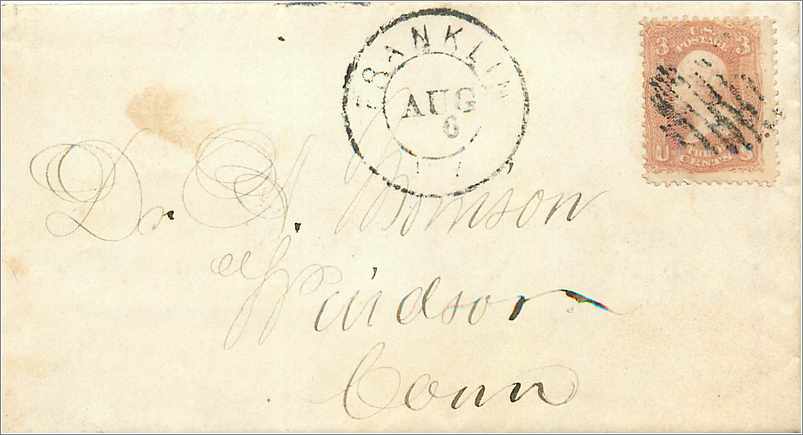 FRANKLIN
AUG
6
U.S.
POSTAGE
3 3
U S
CENTS
Dr. A. Morrison
Windsor
Conn